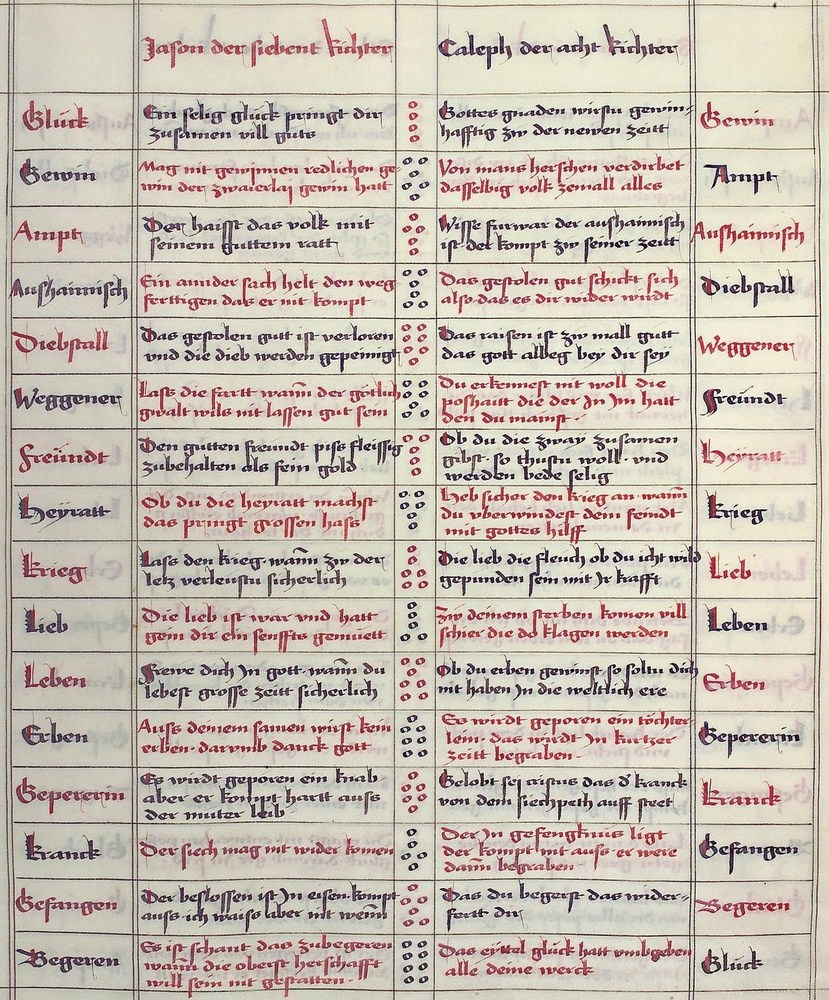 Jason der siebent Richter
Caleph der acht Richter
Glück
Ein selig glück pringt dir
zusamen vill guts
Gottes gnaden wirstu gewin-
hafftig zw der newen zeitt
Gewin
Gewin
Mag nit gewinnen redlichen ge-
win der zwaierlaj gewin hatt
Von mans herschen verdirbet
dasselbig volk zemall alles
Ampt
Ampt
Der haisst das volk mit
seinem guttem ratt
Wisse furwar der aushaimisch
ist der kompt zw seiner zeitt
Aushaimisch
Aushaimisch
Ein annder sach helt den weg
ferttigen das er nit kompt
Das gestolen gut schickt sich
also das es dir wider wirdt
Diebstall
Diebstall
Das gestolen gutt ist verloren
vnd die dieb werden gepeinigt
Das raisen ist zw mall gutt
das gott allbeg bey dir sey
Weggener
Weggener
Lass die fartt wann der götlich
gwalt wils nit lassen gut sein
Du erkennest nit woll die
poshaitt die der Jn Jm hatt
den du mainst
Freündt
Freündt
Den gutten freundt piss fleissig
zubehalten als fein gold
Ob du die zway zusamen
gibst so thustu woll vnd
werden bede selig
Heyratt
Heyratt
Ob du die heyratt machst
das pringt grossen hass
Heb sicher den krieg an wann
du vberwindest dein feindt
mit gottes hilff
Krieg
Krieg
Lass den krieg wann zw der
letz verleustu sicherlich
Die lieb die fleuch ob du icht wild
gepunden sein mit Jr krafft
Lieb
Lieb
Die lieb ist war vnd hatt
gein dir ein senffts gemuett
Zw deinem sterben komen vill
schier die do klagen werden
Leben
Leben
Frewe dich Jn gott wann du
lebest grosse zeitt sicherlich
Ob du erben gewinst so soltu dich
nit haben Jn die weltlich ere
Erben
Erben
Auss deinem samen wirst kein
erben darumb danck gott
Es wirdt geporen ein töchter
lein das wirdt Jn kurtzer
zeitt begraben
Gepererin
Gepererin
Es wirdt geporen ein knab
aber er kompt hartt auss
der muter leib
Gelobt sej cristus das d' kranck
von dem siechpeth auff steet
Kranck
Kranck
Der siech mag nit wider komen
Der Jn gefengknus ligt
der kompt nit auss er were
dann begraben
Gefangen
Gefangen
Der beslossen ist Jn eisen kompt
auss ich waiss aber nit wenn
Das du begerst das wider-
fertt dir
Begeren
Begeren
Es ist schant das zubegeren
wann die oberst herschafft
will sein nit gestatten
Das eyttel glück hatt vmbgeben
alle deine werck
Glück